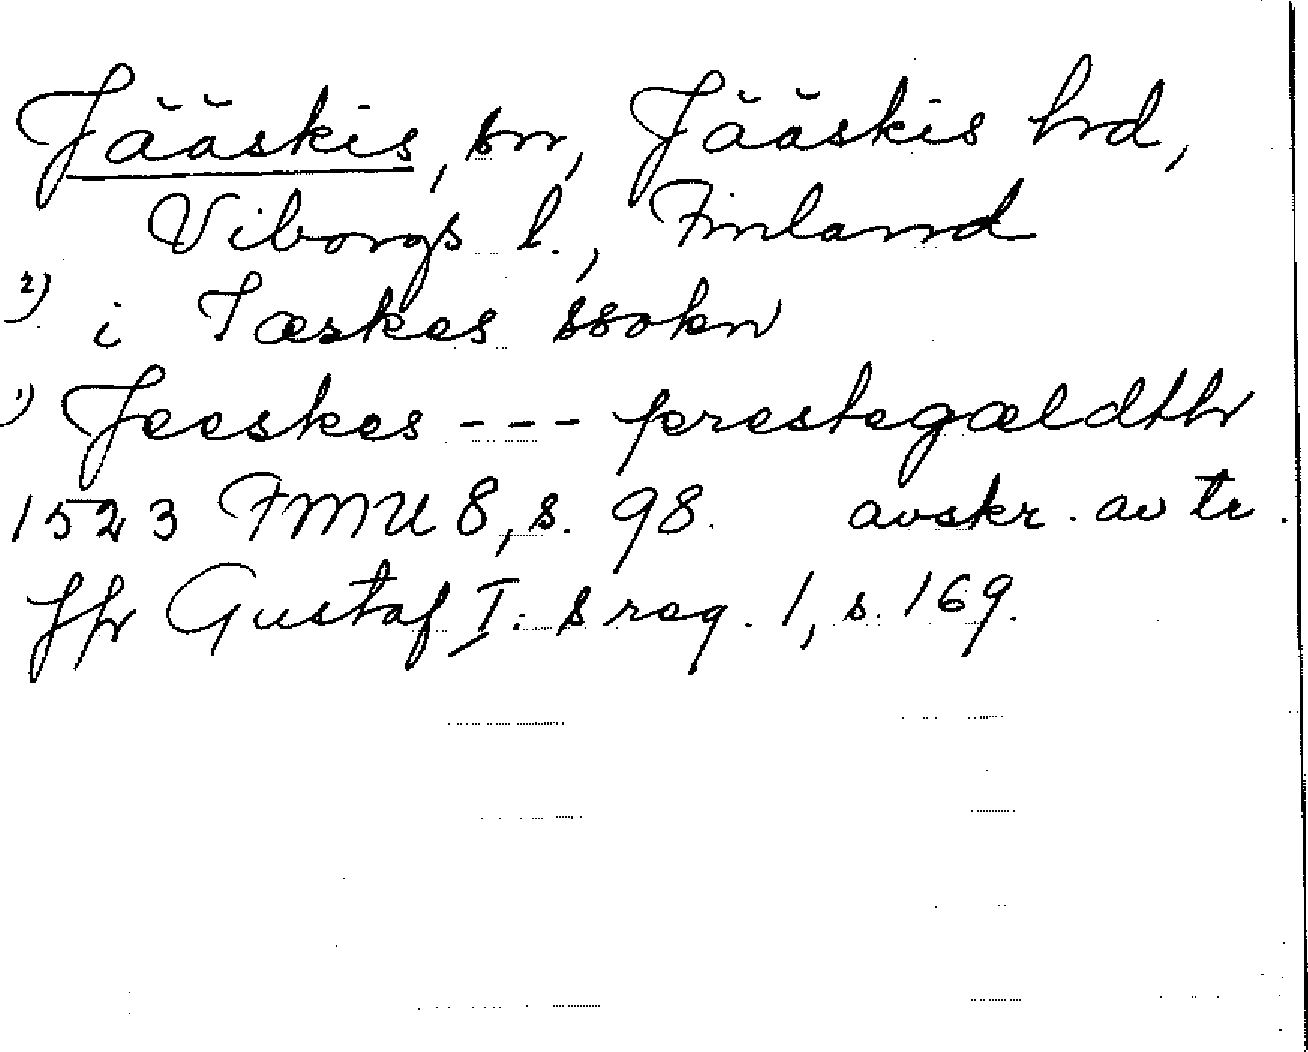 Jääskis, sn, Jääskis hrd,
Viborgs l., Finland
2) i Jæskes ssokn
1) Jeeskes --- prestegældthr
1523 FMU 8, s. 98. avskr. av tr.
ffr Gustaf I: s reg. 1, s. 169.